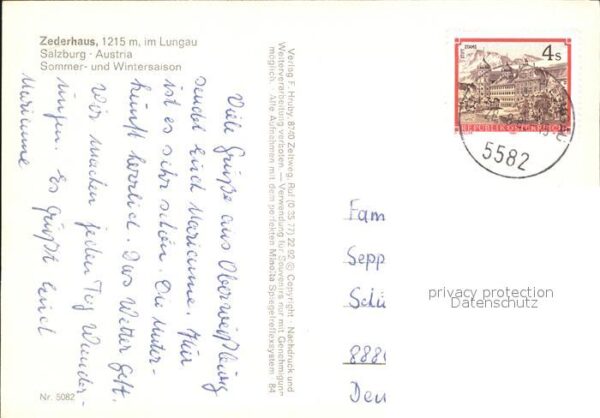 Zederhaus, 1215 m, im Lungau
Salzburg · Austria
Sommer- und Wintersaison
Viele Grüße aus Oberweißburg
sendet Euch Marianne. Hier
ist es sehr schön. Die Unter-
kunft herrlich. Das Wetter geht.
Wir machen jeden Tag Wander-
ungen. Es grüßt Euch
Marianne
Verlag F. Hruby, 8740 Zeltweg, Ruf (0 35 77) 22 92 © Copyright - Nachdruck und
Weiterverarbeitung verboten. — Verwendung für Souvenirs nur mit Genehmigung
möglich. - Alle Aufnahmen mit dem perfekten Minolta Spiegelreflexsystem 84
STIFT STAMS
4 S
REPUBLIK ÖSTERREICH
5582
Fam
Sepp
Schü
privacy protection
Datenschutz
8880
Deu
Nr. 5082